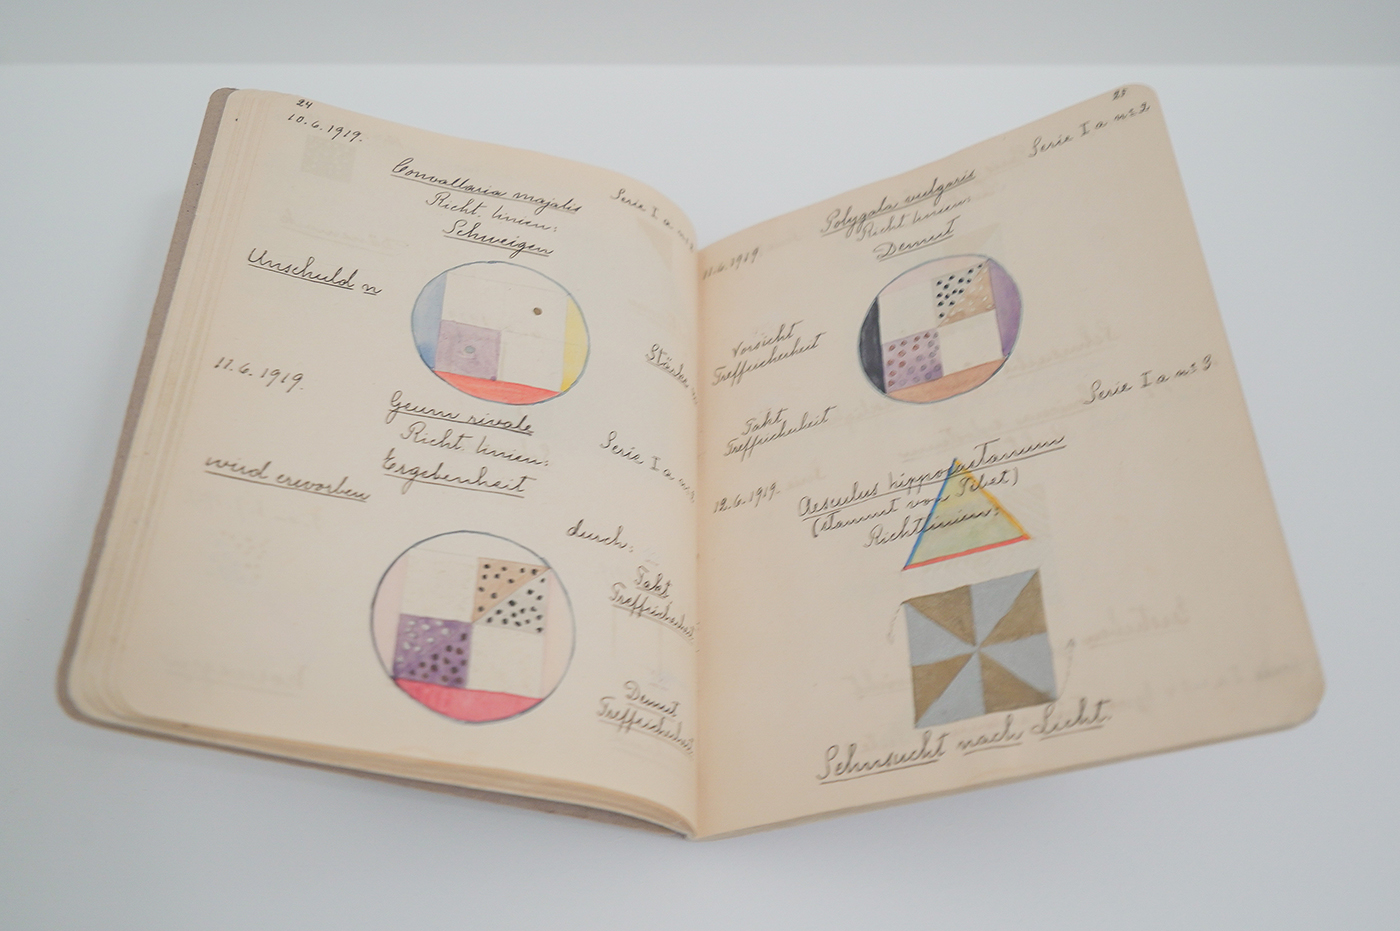 24
10.6.1919.
Convallaria majalis
Serie I a n:
Richt. linien:
Schweigen
Unschuld n
Stärke
11.6.1919.
Geum rivale
Serie I a n:
Richt. linien:
Ergebenheit
wird erworben
durch:
Takt
Treffsicherheit
Demut
Treffsicherheit
25
Serie I a n:s 2
Polygala vulgaris
Richt linien:
11.6.1919.
Demut
Vorsicht
Treffsicherheit
Takt
Treffsicherheit
Serie I a n:s 3.
12.6.1919.
Aesculus hippocastanum
(stammt von Tibet)
Richtlinien:
Sehnsucht nach Licht.